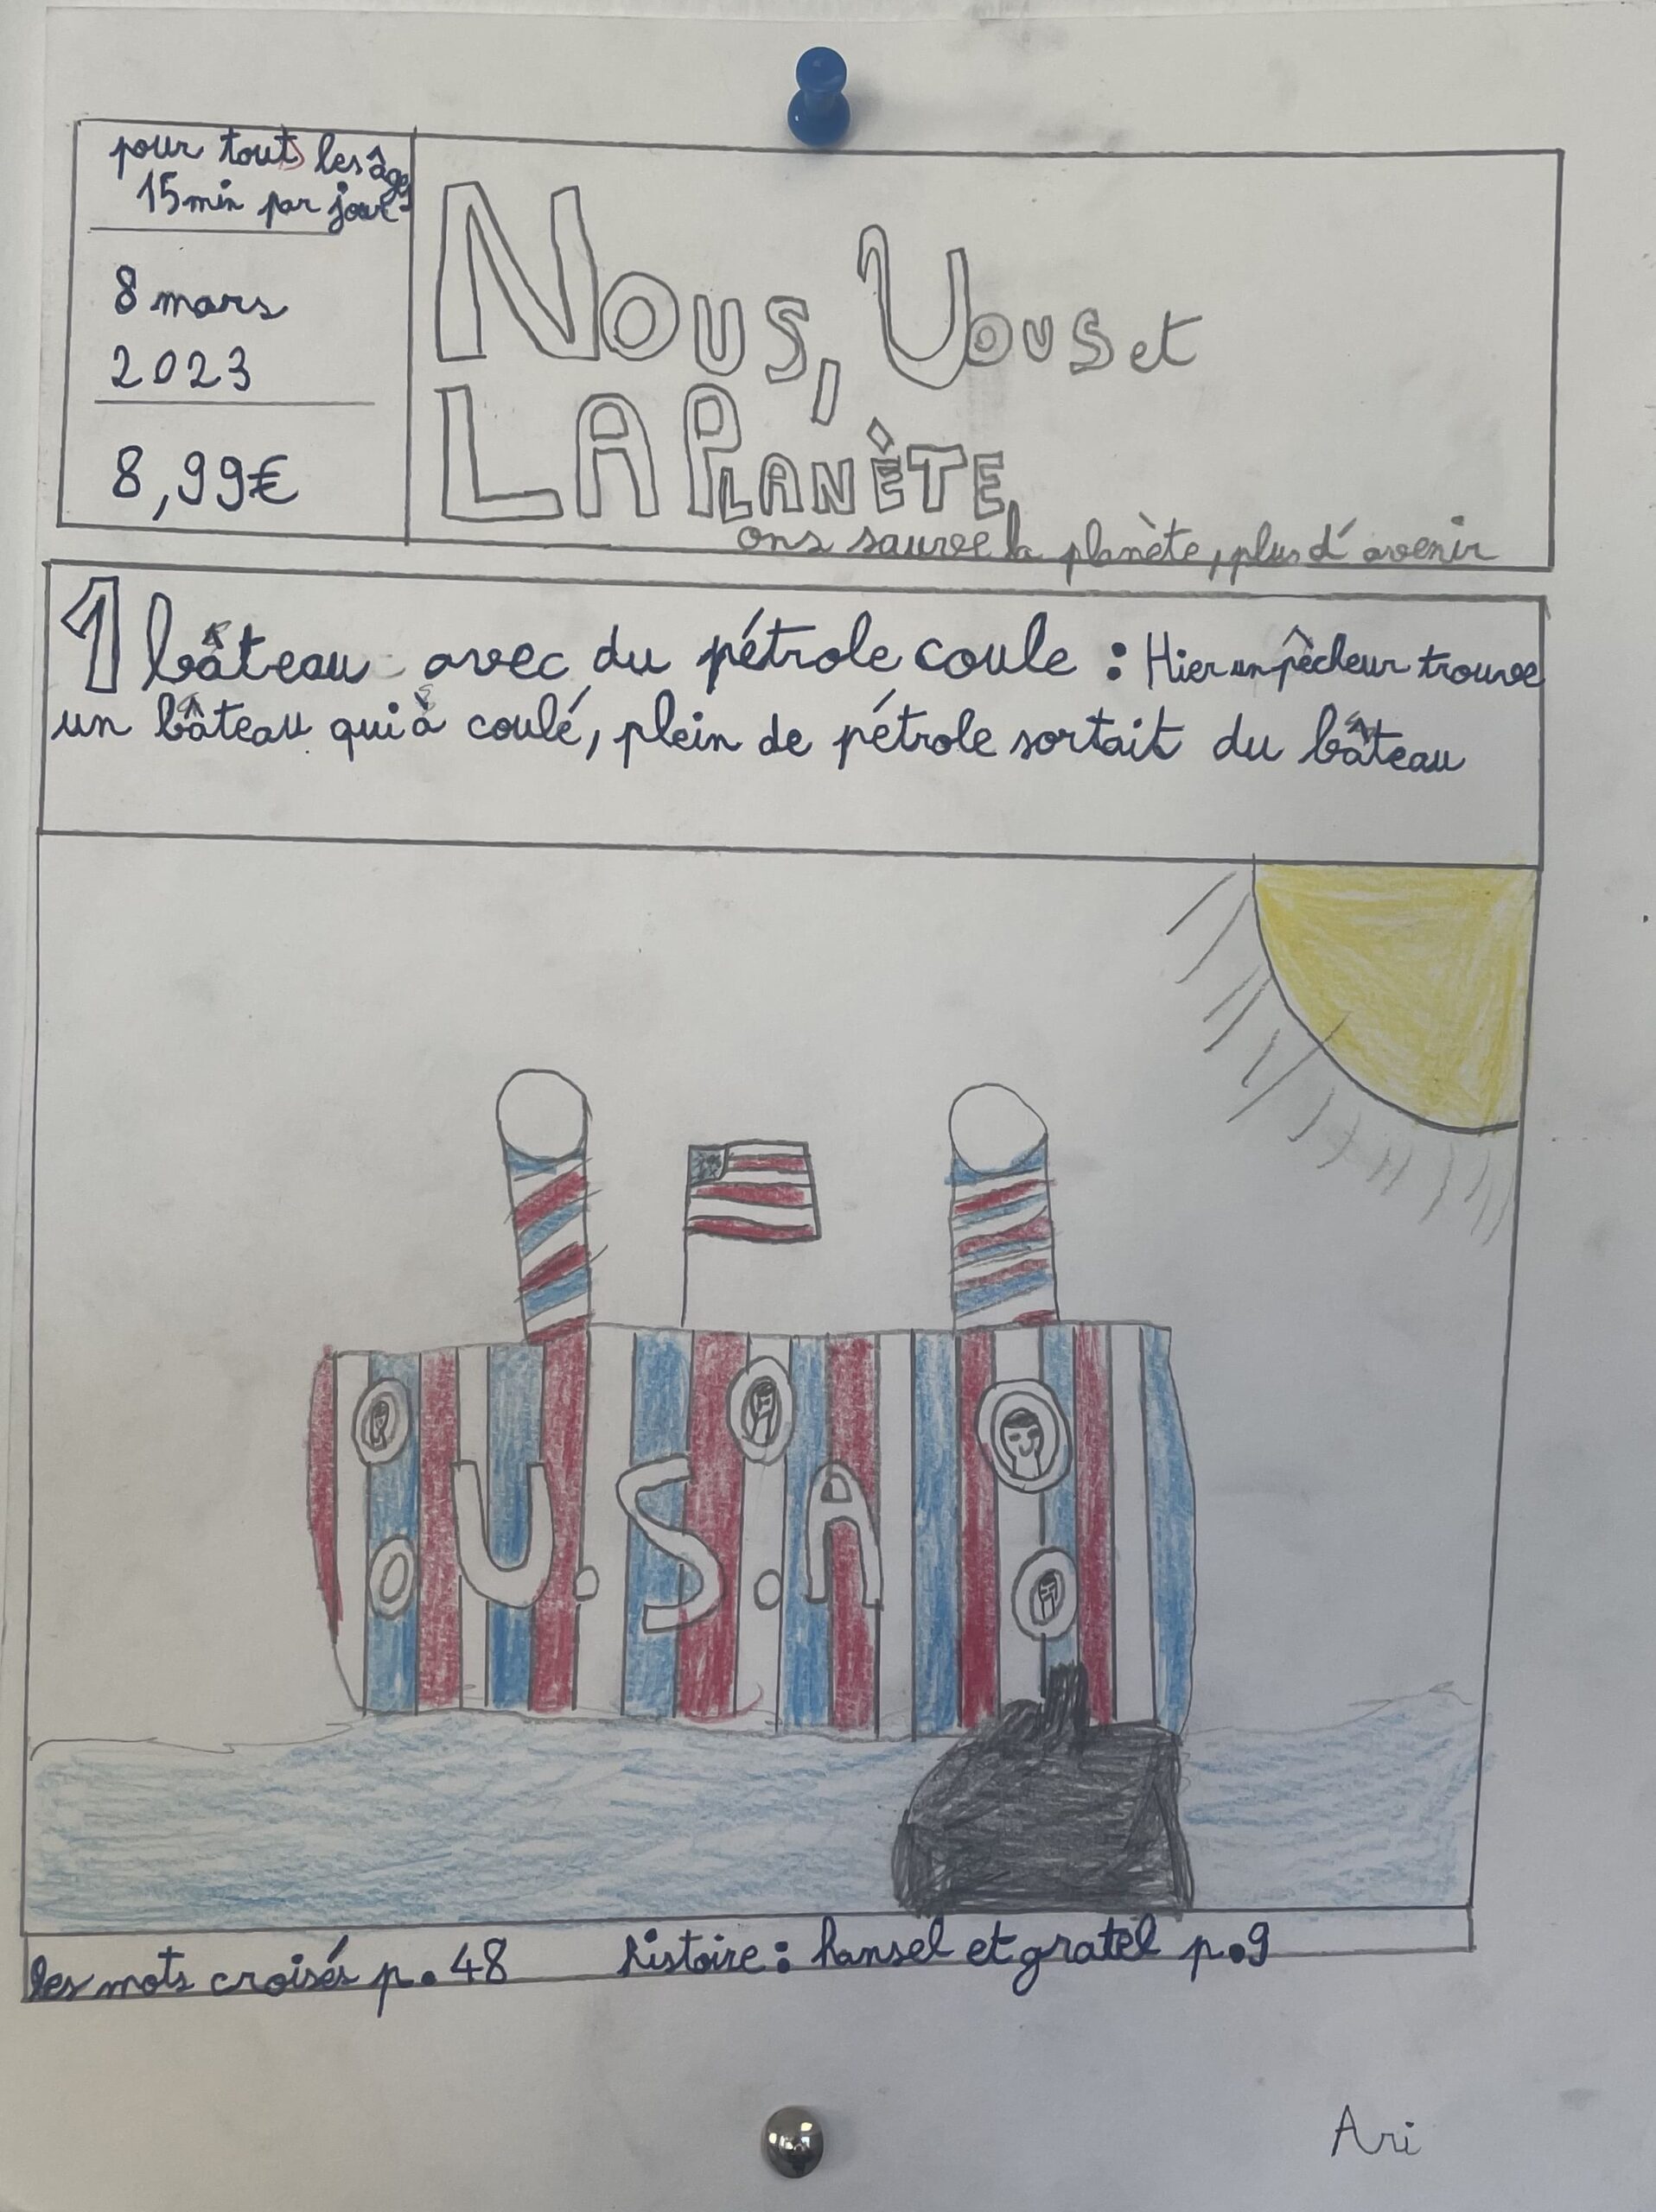 pour tout les âges
15min par jour
8 mars
2023
8,99€
Nous, Vous et
LA PLANÈTE
ons sauve la planète, plus d'avenir
1 bâteau avec du pétrole coule : Hier un pêcheur trouve
un bâteau qui à coulé, plein de pétrole sortait du bâteau
U.S.A
les mots croisés p. 48 histoire : hansel et gratel p.9
Ari